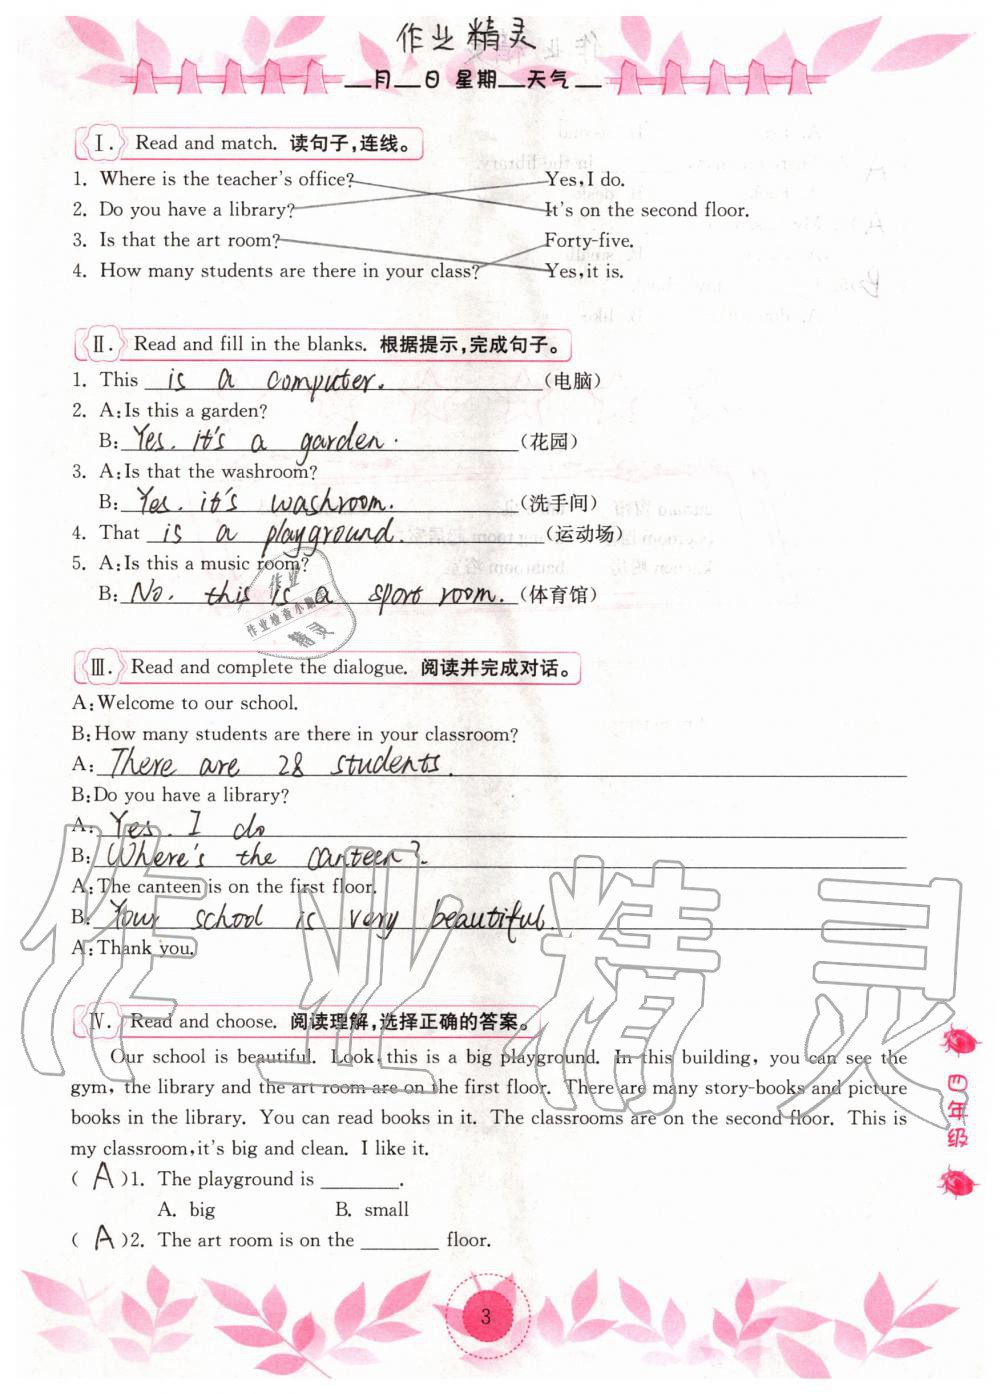 作业精灵
__月__日 星期__天气__
Ⅰ. Read and match. 读句子,连线。
1. Where is the teacher's office? Yes,I do.
2. Do you have a library? It's on the second floor.
3. Is that the art room? Forty-five.
4. How many students are there in your class? Yes,it is.
Ⅱ. Read and fill in the blanks. 根据提示,完成句子。
1. This is a computer. (电脑)
2. A:Is this a garden?
B: Yes. it's a garden. (花园)
3. A:Is that the washroom?
B: Yes. it's washroom. (洗手间)
4. That is a playground. (运动场)
5. A:Is this a music room?
B: No. this is a sport room. (体育馆)
作业
作业检查小助手
精灵
Ⅲ. Read and complete the dialogue. 阅读并完成对话。
A:Welcome to our school.
B:How many students are there in your classroom?
A: There are 28 students.
B:Do you have a library?
A: Yes. I do
B: Where's the canteen?
A:The canteen is on the first floor.
B: Your school is very beautiful.
A:Thank you.
作业精灵
Ⅳ. Read and choose. 阅读理解,选择正确的答案。
Our school is beautiful. Look, this is a big playground. In this building, you can see the
gym, the library and the art room are on the first floor. There are many story-books and picture
books in the library. You can read books in it. The classrooms are on the second floor. This is
my classroom,it's big and clean. I like it.
( A )1. The playground is ________.
A. big B. small
( A )2. The art room is on the ________ floor.
四年级
3